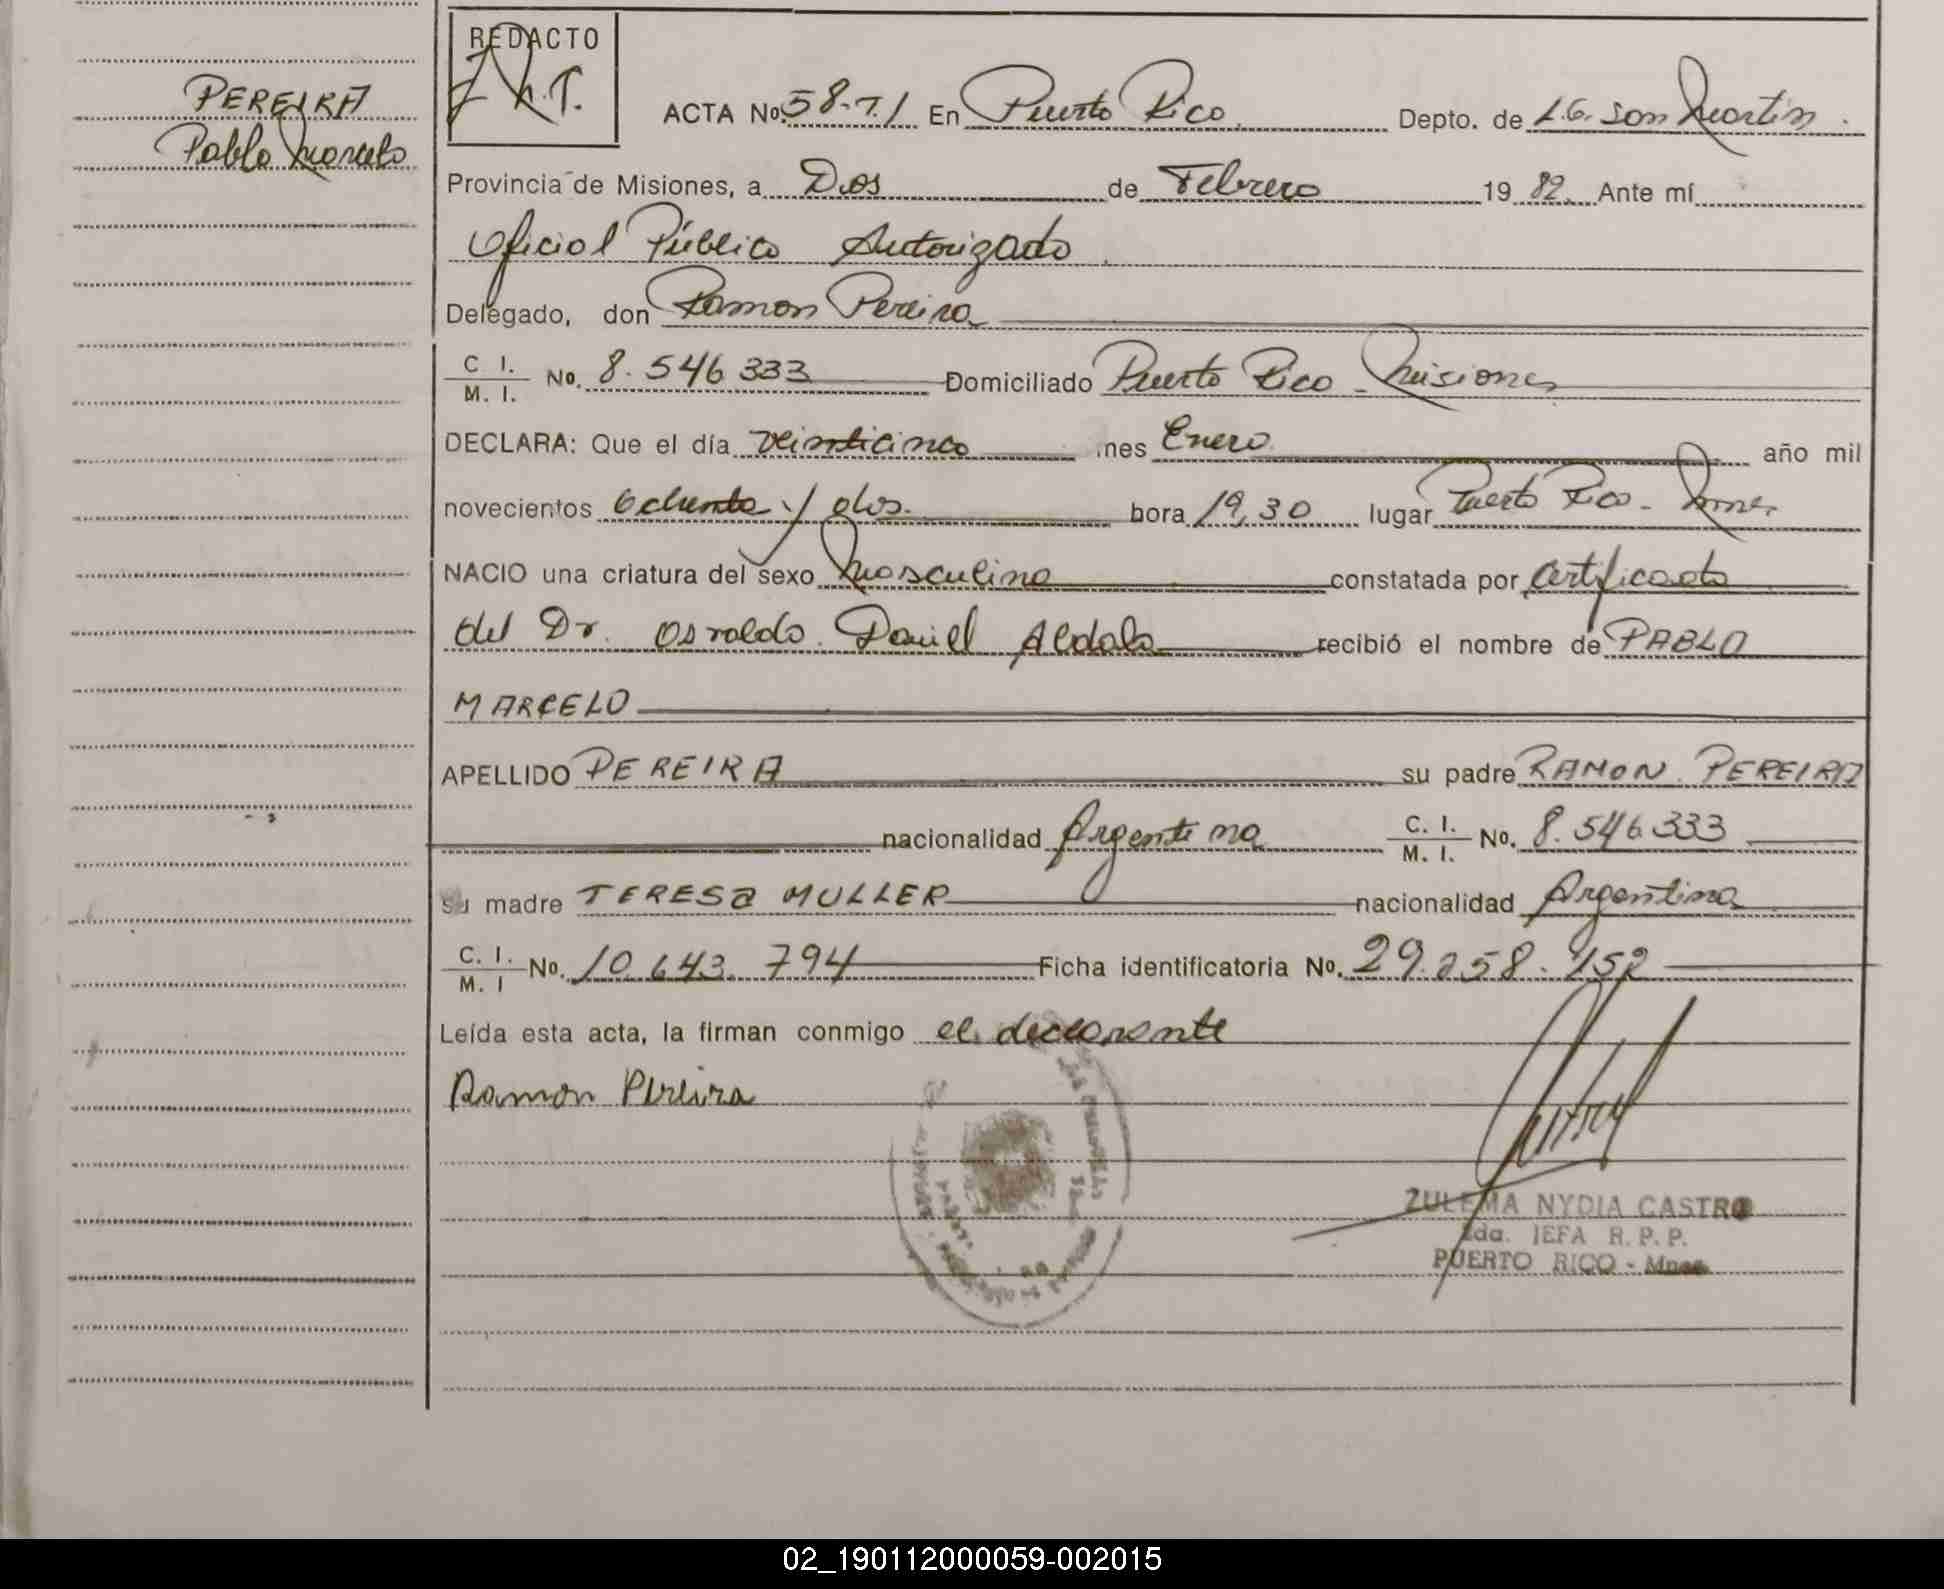 PEREIRA
Pablo Marcelo
REDACTO
ACTA No. 58-T.I En Puerto Rico Depto. de L.G. San Martín.
Provincia de Misiones, a Dos de Febrero 1982. Ante mí
Oficial Público Autorizado
Delegado, don Ramon Pereira
C I. / M. I. No. 8.546 333 Domiciliado Puerto Rico - Misiones
DECLARA: Que el día veinticinco mes Enero año mil
novecientos ochenta y dos. hora 19,30 lugar Puerto Rico - Mnes.
NACIO una criatura del sexo Masculino constatada por Certificado
del Dr. Osvaldo Daniel Aldala recibió el nombre de PABLO
MARCELO
APELLIDO PEREIRA su padre RAMON PEREIRA
nacionalidad Argentina C. I. / M. I. No. 8.546.333
su madre TERESA MULLER nacionalidad Argentina
C. I. / M. I No. 10.643.794 Ficha identificatoria No. 29.258.452
Leída esta acta, la firman conmigo el declarante
Ramon Pereira
ZULEMA NYDIA CASTRO
2da. JEFA R. P. P.
PUERTO RICO - Mnes
02_190112000059-002015